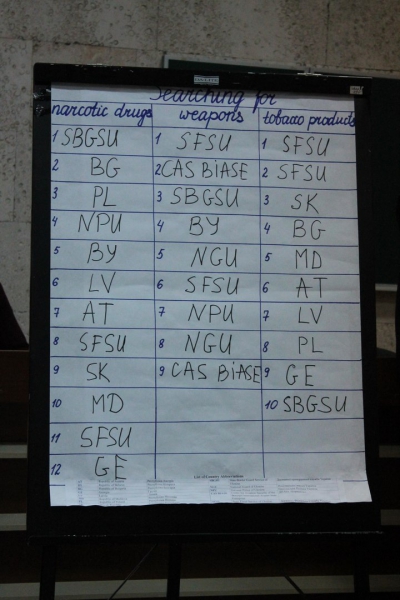 Searching for
narcotic drugs weapons tobacco products
1 SBGSU 1 SFSU 1 SFSU
2 BG 2 CAS BiASE 2 SFSU
3 PL 3 SBGSU 3 SK
4 NPU 4 BY 4 BG
5 BY 5 NGU 5 MD
6 LV 6 SFSU 6 AT
7 AT 7 NPU 7 LV
8 SFSU 8 NGU 8 PL
9 SK 9 CAS BiASE 9 GE
10 MD 10 SBGSU
11 SFSU
12 GE